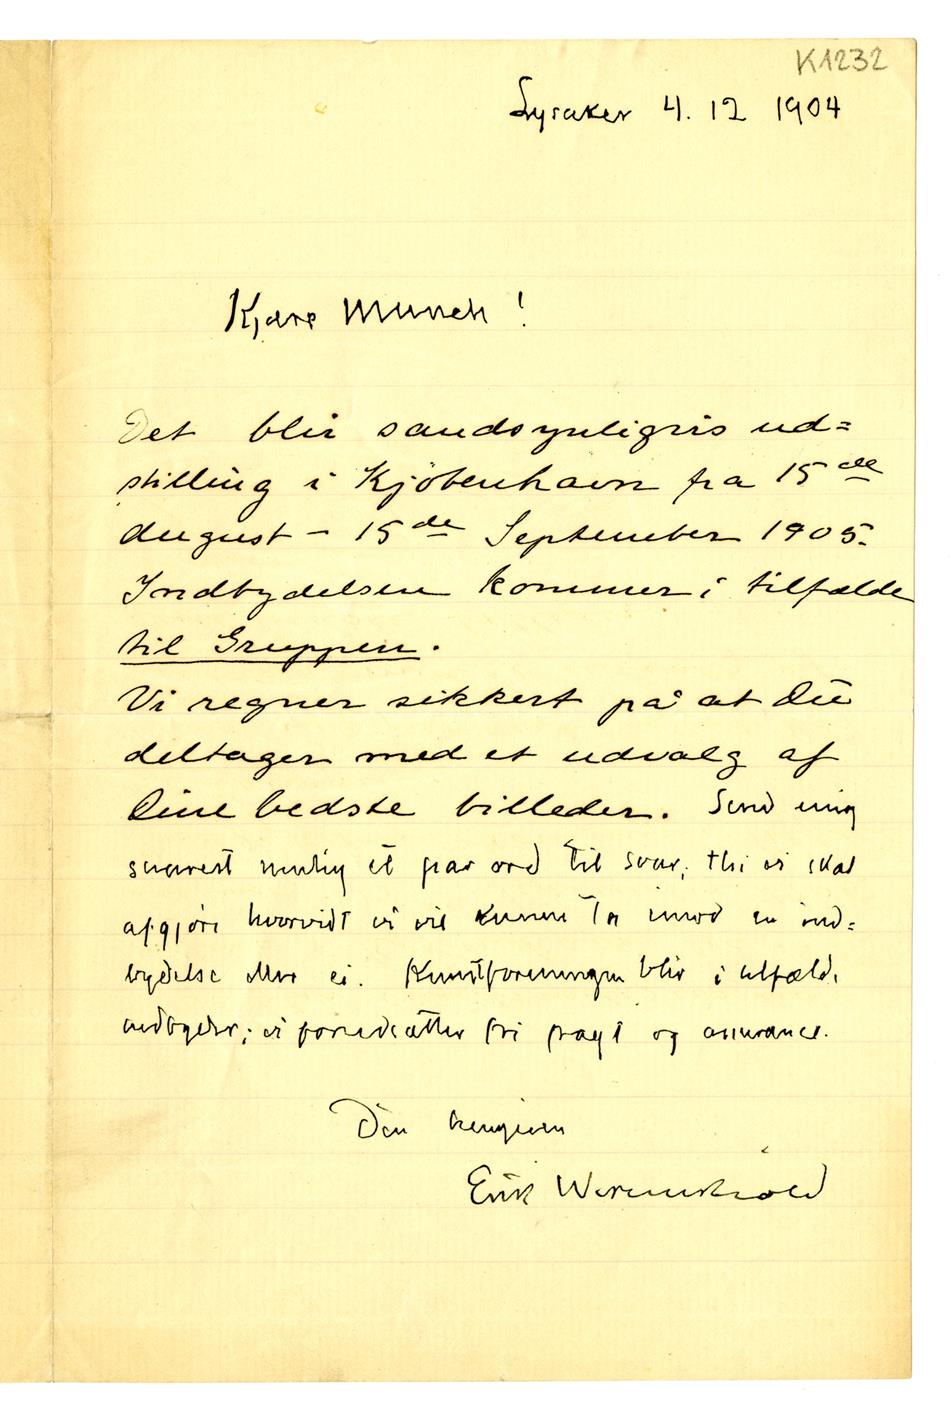 K1232
Lysaker 4. 12 1904
Kjære Munch!
Det blir sandsynligvis ud=
stilling i Kjöbenhavn fra 15de
August – 15de September 1905.
Indbydelsen kommer i tilfælde
til Gruppen.
Vi regner sikkert på at Du
deltager med et udvalg af
Dine bedste billeder. Send mig
snarest mulig et par ord til svar; thi vi skal
afgjøre hvorvidt vi vil kunne ta imod en ind=
bydelse eller ei. Kunstforeningen blir i tilfælde
indbyder; vi forudsætter fri fragt og assurance.
Din hengivne
Erik Werenskiold